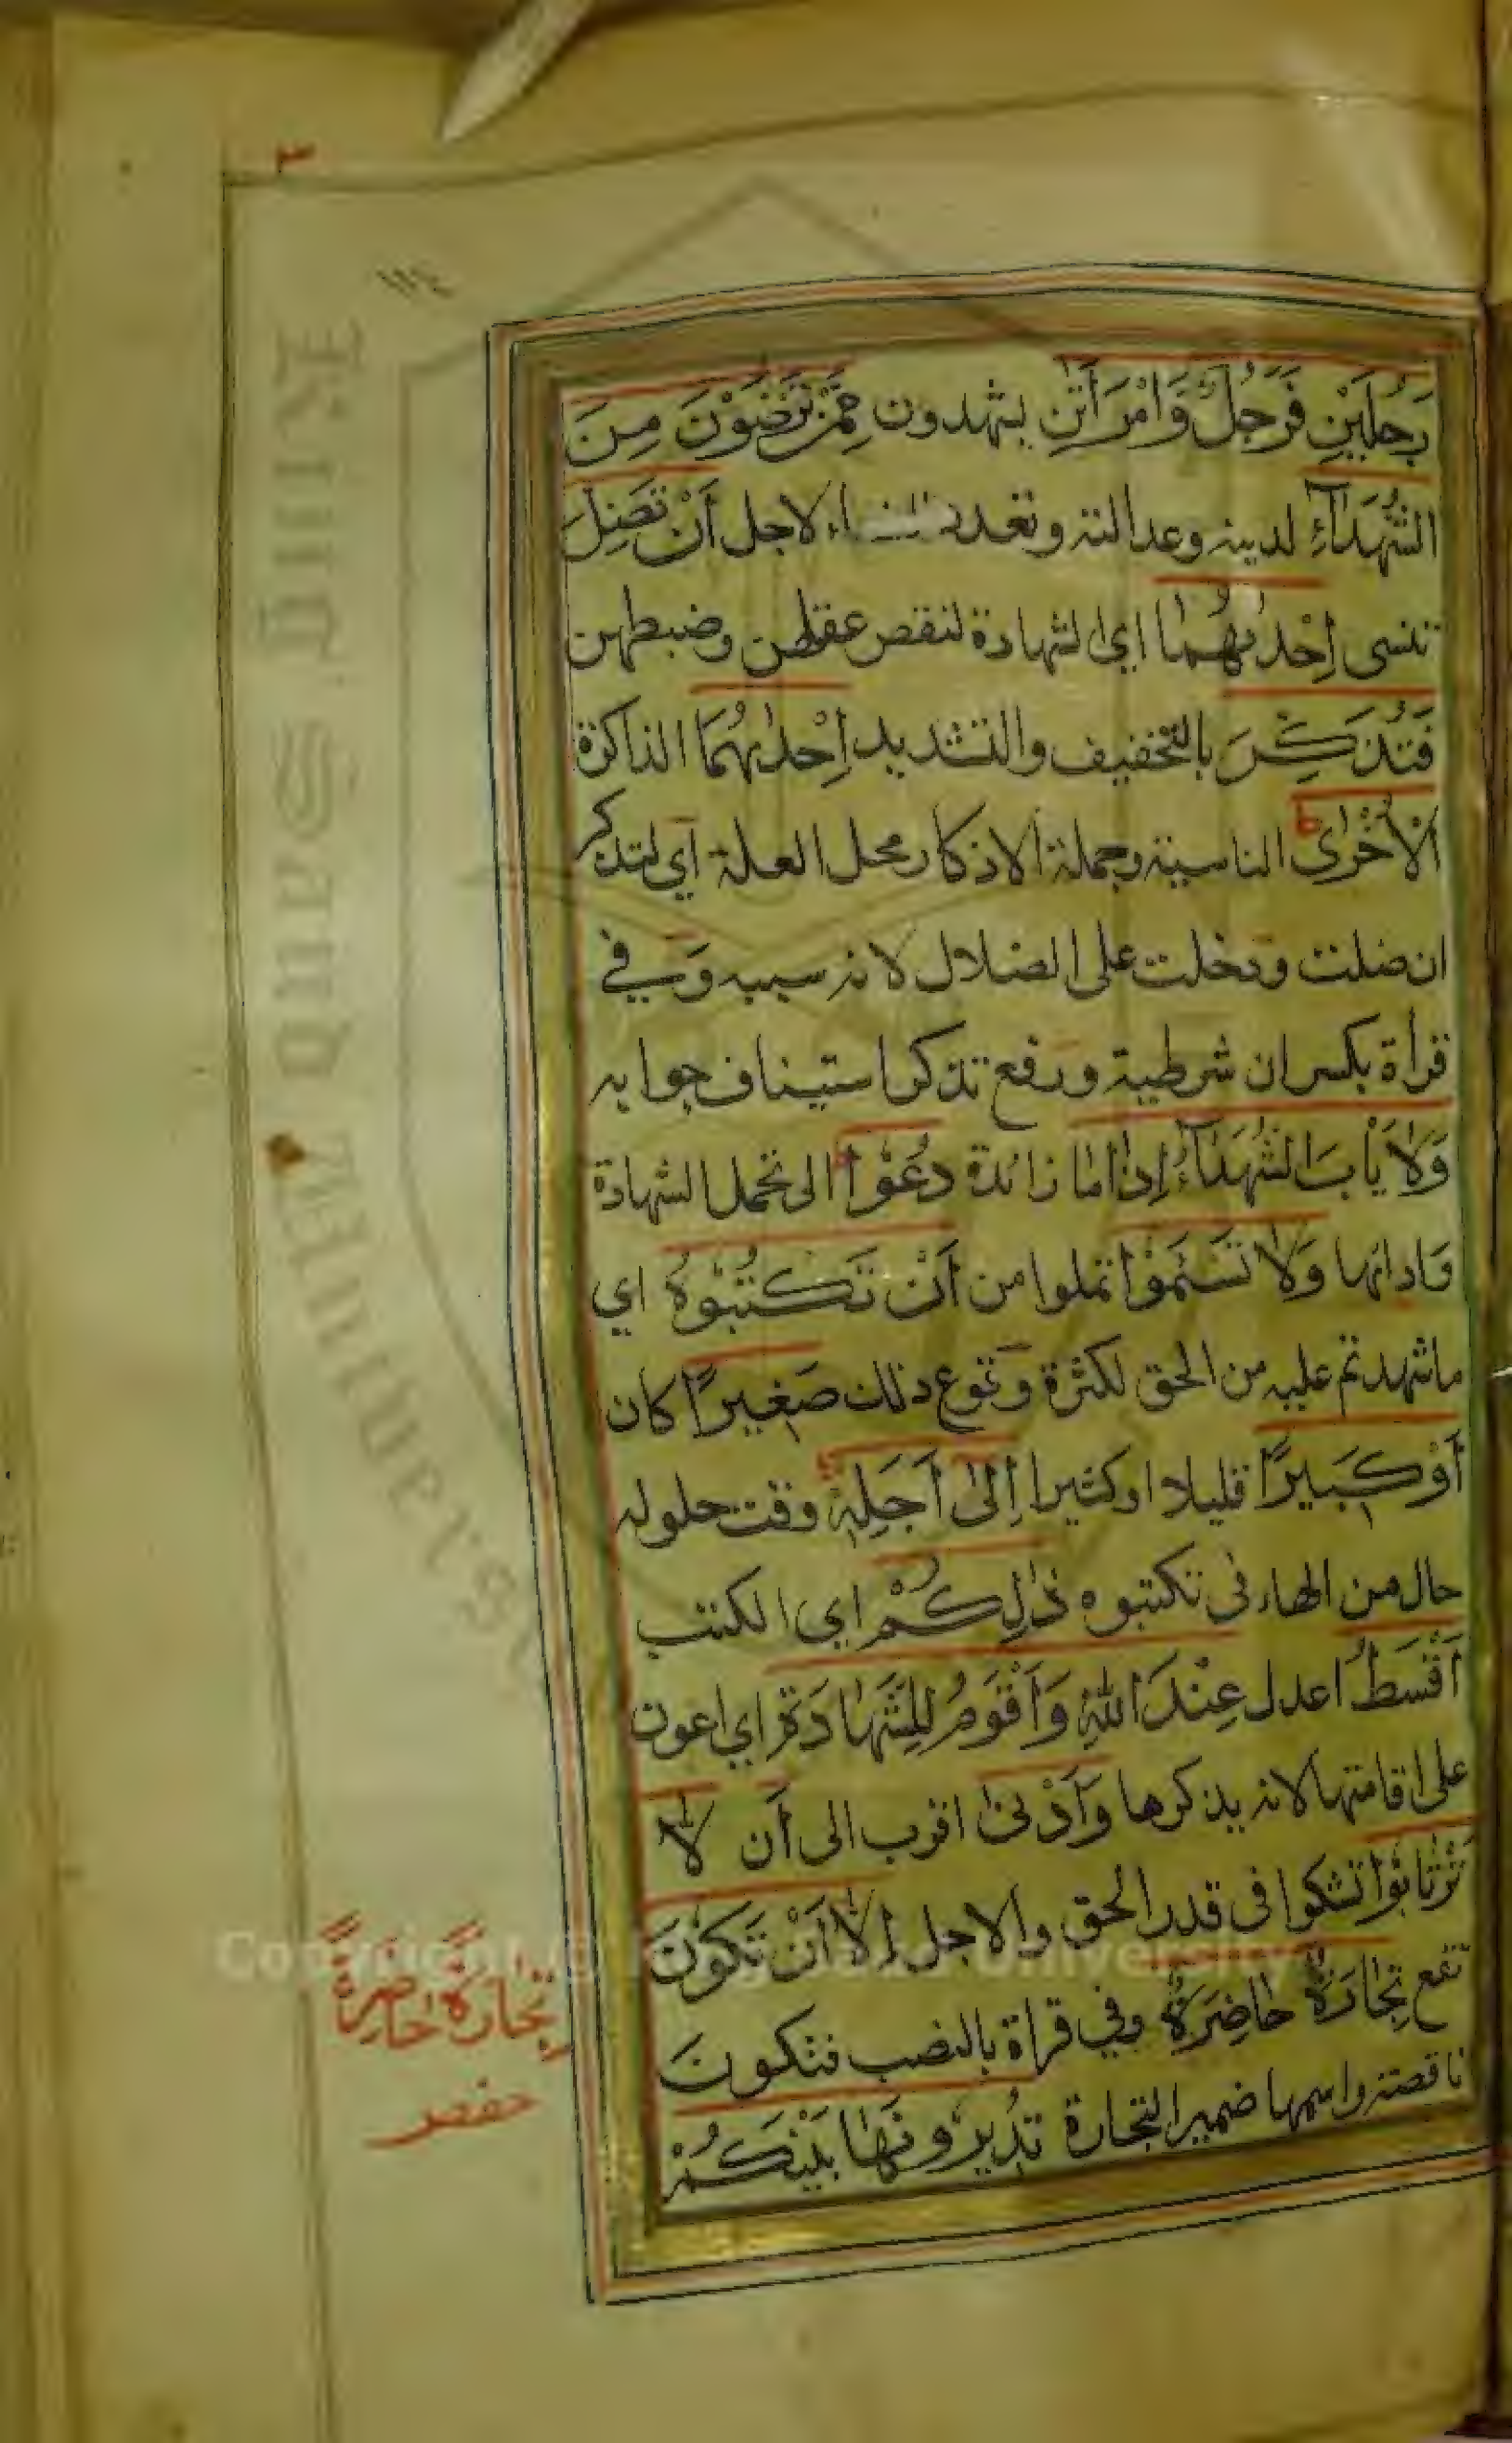 ٣
١١٤
رَجُلَيْنِ فَرَجُلٌ وَامْرَاَتٰنِ يشهدون مِمَّنْ تَرْضَوْنَ مِنَ
الشُّهَدَآءِ لدينه وعدالته وتعدد النساء لاجل اَنْ تَضِلَّ
تنسى اِحْدٰىهُمَا اي الشهادة لنقص عقلهن وضبطهن
فَتُذَكِّرَ بالتخفيف والتشديد اِحْدٰىهُمَا الذاكرة
الْاُخْرٰى ط الناسية وجملة الاذكار محل العلة اي لتذكر
ان ضلت ودخلت على الضلال لانه سببه وَفي
قراة بكسر ان شرطية ورفع تذكر استيناف جوابه
وَلَا يَاْبَ الشُّهَدَآءُ اِذَا ما زائدة دُعُوْا الى تحمل الشهادة
وَادائها وَلَا تَسْـَٔمُوْا تملوا من اَنْ تَكْتُبُوْهُ اي
ما شهدتم عليه من الحق لكثرة وقوع ذلك صَغِيرًا كان
اَوْ كَبِيرًا قليلا او كثيرا اِلٰى اَجَلِهٖ وقت حلوله
حال من الهاء فى تكتبوه ذٰلِكُمْ اي الكتب
اَقْسَطُ اعدل عِنْدَ اللّٰهِ وَاَقْوَمُ لِلشَّهَادَةِ اي اعون
على اقامتها لانه يذكرها وَاَدْنٰى اقرب الى اَن لَا
تَرْتَابُوْا تشكوا فى قدر الحق والاجل اِلَّا اَنْ تَكُوْنَ
تقع تِجَارَةٌ حَاضِرَةٌ وفي قراة بالنصب فتكون
ناقصة واسمها ضمير التجارة تُدِيْرُوْنَهَا بَيْنَكُمْ
تِجَارَةً حَاضِرَةً
حفص
King Saud University
Copyright © King Saud University